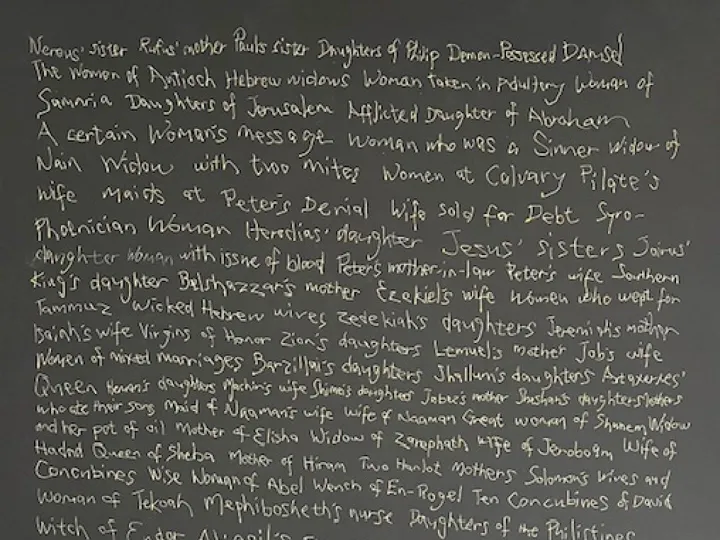 Nereus' sister Rufus' mother Paul's sister Daughters of Philip Demon-Possessed DAMsel
The Women of Antioch Hebrew widows Woman Taken in Adultery Woman of
Samaria Daughters of Jerusalem Afflicted Daughter of Abraham
A certain Woman's Message Woman who was a Sinner Widow of
Nain Widow with two mites Women at Calvary Pilate's
wife Maids at Peter's Denial Wife Sold for Debt Syro-
Phoenician Woman Herodias' daughter Jesus' sisters Jairus'
daughter Woman with issue of blood Peter's mother-in-law Peter's wife Southern
King's daughter Belshazzar's mother Ezekiel's wife Women who wept for
Tammuz Wicked Hebrew wives Zedekiah's daughters Jeremiah's mother
Isaiah's wife Virgins of Honor Zion's daughters Lemuel's mother Job's wife
Women of mixed marriages Barzillai's daughters Shallum's daughters Artaxerxes'
Queen Heman's daughters Machir's wife Shimei's daughters Jabez's mother Sheshan's daughters Mothers
who ate their sons Maid of Naaman's wife Wife of Naaman Great woman of Shunem Widow
and her pot of oil Mother of Elisha Widow of Zarephath Wife of Jeroboam Wife of
Hadad Queen of Sheba Mother of Hiram Two Harlot Mothers Solomon's Wives and
Concubines Wise Woman of Abel Wench of En-Rogel Ten Concubines of David
Woman of Tekoah Mephibosheth's nurse Daughters of the Philistines
Witch of Endor Abigail's